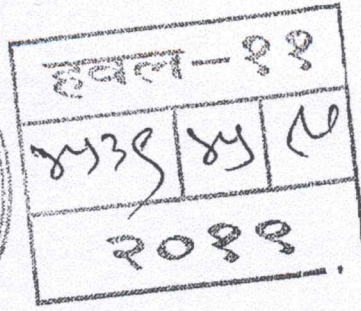 हवल-११
४५३९ ४५
२०११